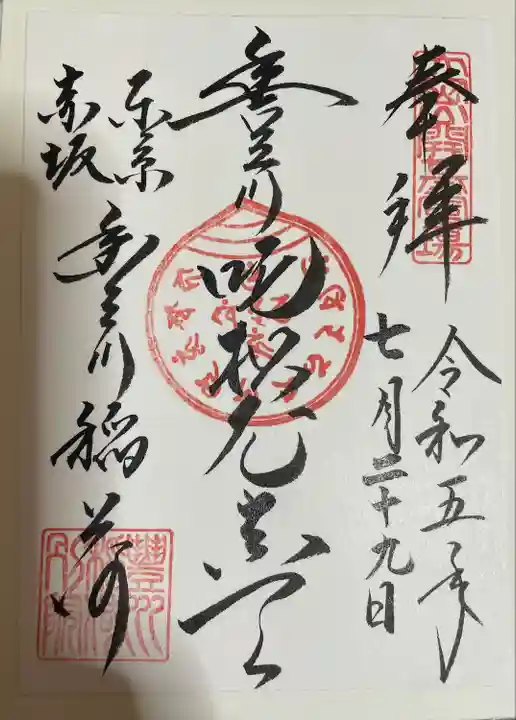 奉拝
令和五年
七月二十九日
豊川吒枳尼真天
東京
赤坂
豊川稲荷